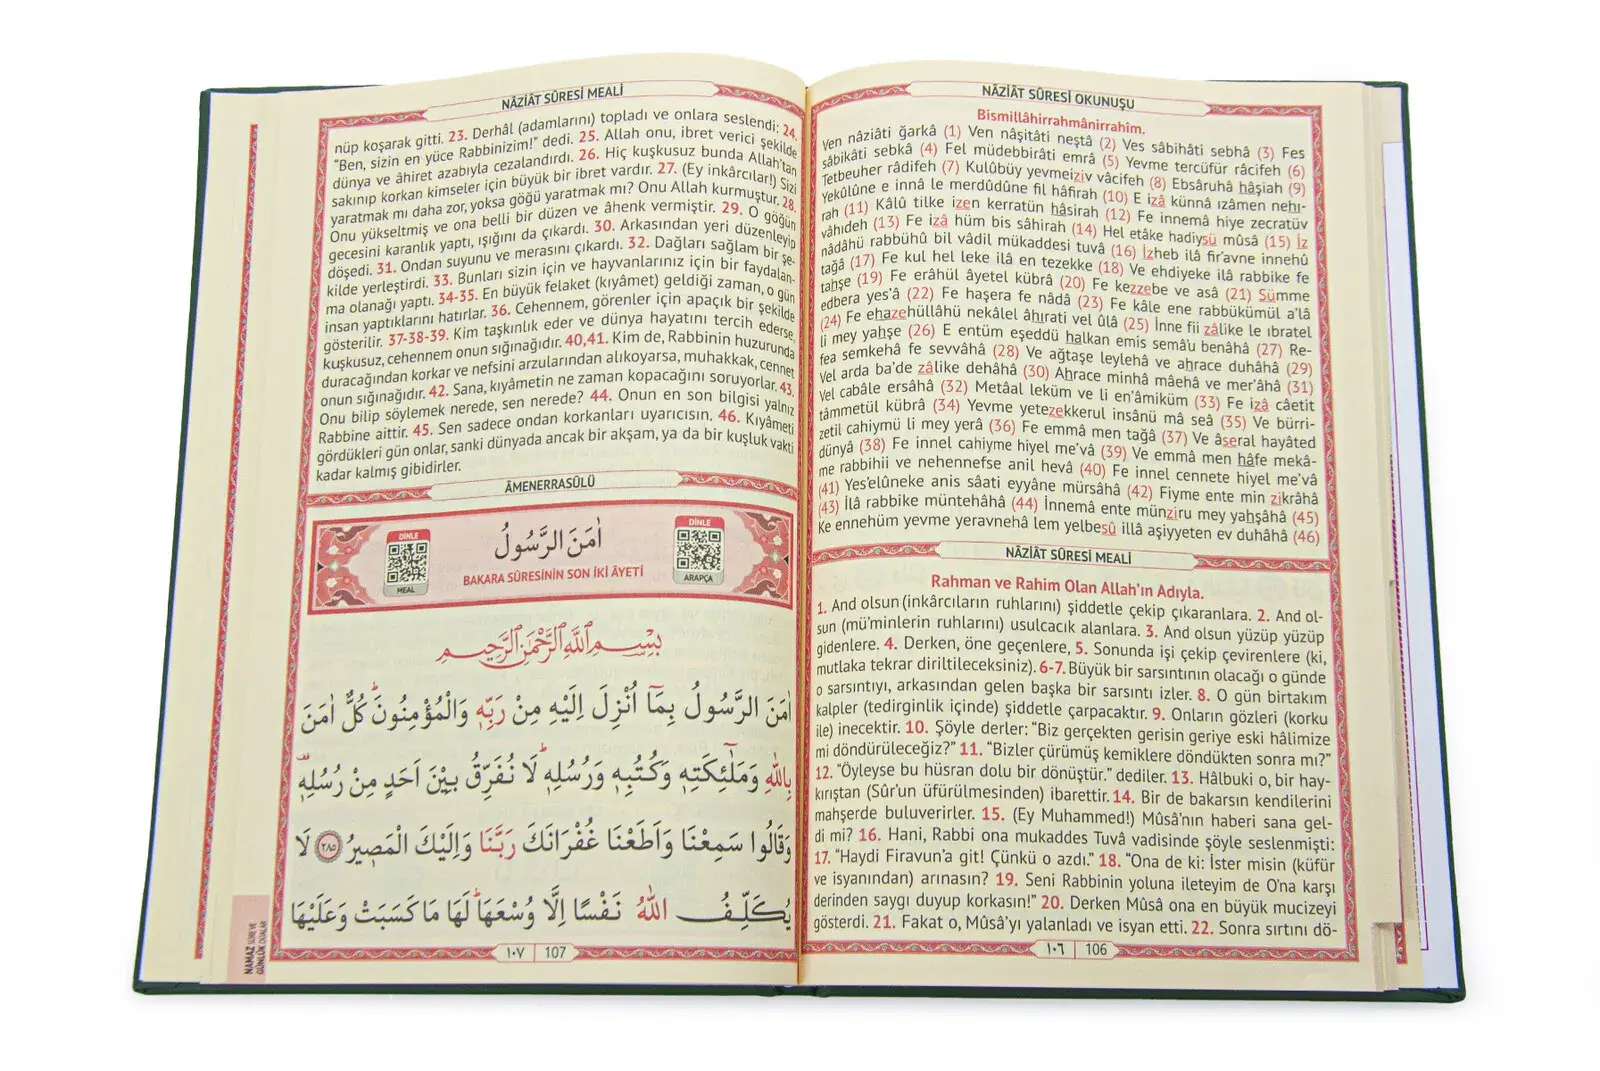 NÂZİÂT SÛRESİ OKUNUŞU
Bismillâhirrahmânirrahîm.
Ven nâziâti ğarkâ (1) Ven nâşitâti neştâ (2) Ves sâbihâti sebhâ (3) Fes
sâbikâti sebkâ (4) Fel müdebbirâti emrâ (5) Yevme tercüfür râcifeh (6)
Tetbeuher râdifeh (7) Kulûbüy yevmeiziv vâcifeh (8) Ebsâruhâ hâşiah (9)
Yekûlûne e innâ le merdûdûne fil hâfirah (10) E izâ künnâ ızâmen nehı-
rah (11) Kâlû tilke izen kerratün hâsirah (12) Fe innemâ hiye zecratüv
vâhıdeh (13) Fe izâ hüm bis sâhirah (14) Hel etâke hadiysü mûsâ (15) İz
nâdâhü rabbühû bil vâdil mükaddesi tuvâ (16) İzheb ilâ fir'avne innehû
tağâ (17) Fe kul hel leke ilâ en tezekke (18) Ve ehdiyeke ilâ rabbike fe
tahşe (19) Fe erâhül âyetel kübrâ (20) Fe kezzebe ve asâ (21) Sümme
edbera yes'â (22) Fe haşera fe nâdâ (23) Fe kâle ene rabbükümül a'lâ
(24) Fe ehazehüllâhü nekâlel âhırati vel ûlâ (25) İnne fii zâlike le ıbratel
li mey yahşe (26) E entüm eşeddü halkan emis semâ'u benâhâ (27) Re-
fea semkehâ fe sevvâhâ (28) Ve ağtaşe leylehâ ve ahrace duhâhâ (29)
Vel arda ba'de zâlike dehâhâ (30) Ahrace minhâ mâehâ ve mer'âhâ (31)
Vel cabâle ersâhâ (32) Metâal leküm ve li en'âmiküm (33) Fe izâ câetit
tâmmetül kübrâ (34) Yevme yetezekkerul insânü mâ seâ (35) Ve bürri-
zetil cahiymü li mey yerâ (36) Fe emmâ men tağâ (37) Ve âseral hayâted
dünyâ (38) Fe innel cahiyme hiyel me'vâ (39) Ve emmâ men hâfe mekâ-
me rabbihii ve nehennefse anil hevâ (40) Fe innel cennete hiyel me'vâ
(41) Yes'elûneke anis sâati eyyâne mürsâhâ (42) Fiyme ente min zikrâhâ
(43) İlâ rabbike müntehâhâ (44) İnnemâ ente münziru mey yahşâhâ (45)
Ke ennehüm yevme yeravnehâ lem yelbesû illâ aşiyyeten ev duhâhâ (46)
NÂZİÂT SÛRESİ MEALİ
Rahman ve Rahim Olan Allah'ın Adıyla.
1. And olsun (inkârcıların ruhlarını) şiddetle çekip çıkaranlara. 2. And ol-
sun (mü'minlerin ruhlarını) usulcacık alanlara. 3. And olsun yüzüp yüzüp
gidenlere. 4. Derken, öne geçenlere, 5. Sonunda işi çekip çevirenlere (ki,
mutlaka tekrar diriltileceksiniz). 6-7. Büyük bir sarsıntının olacağı o günde
o sarsıntıyı, arkasından gelen başka bir sarsıntı izler. 8. O gün birtakım
kalpler (tedirginlik içinde) şiddetle çarpacaktır. 9. Onların gözleri (korku
ile) inecektir. 10. Şöyle derler: “Biz gerçekten gerisin geriye eski hâlimize
mi döndürüleceğiz?” 11. “Bizler çürümüş kemiklere döndükten sonra mı?”
12. “Öyleyse bu hüsran dolu bir dönüştür.” dediler. 13. Hâlbuki o, bir hay-
kırıştan (Sûr'un üfürülmesinden) ibarettir. 14. Bir de bakarsın kendilerini
mahşerde buluverirler. 15. (Ey Muhammed!) Mûsâ'nın haberi sana gel-
di mi? 16. Hani, Rabbi ona mukaddes Tuvâ vadisinde şöyle seslenmişti:
17. “Haydi Firavun'a git! Çünkü o azdı.” 18. “Ona de ki: İster misin (küfür
ve isyanından) arınasın? 19. Seni Rabbinin yoluna ileteyim de O'na karşı
derinden saygı duyup korkasın!” 20. Derken Mûsâ ona en büyük mucizeyi
gösterdi. 21. Fakat o, Mûsâ'yı yalanladı ve isyan etti. 22. Sonra sırtını dö-
١٠٦ 106
NÂZİÂT SÛRESİ MEALİ
nüp koşarak gitti. 23. Derhâl (adamlarını) topladı ve onlara seslendi: 24.
“Ben, sizin en yüce Rabbinizim!” dedi. 25. Allah onu, ibret verici şekilde
dünya ve âhiret azabıyla cezalandırdı. 26. Hiç kuşkusuz bunda Allah'tan
sakınıp korkan kimseler için büyük bir ibret vardır. 27. (Ey inkârcılar!) Sizi
yaratmak mı daha zor, yoksa göğü yaratmak mı? Onu Allah kurmuştur. 28.
Onu yükseltmiş ve ona belli bir düzen ve âhenk vermiştir. 29. O göğün
gecesini karanlık yaptı, ışığını da çıkardı. 30. Arkasından yeri düzenleyip
döşedi. 31. Ondan suyunu ve merasını çıkardı. 32. Dağları sağlam bir şe-
kilde yerleştirdi. 33. Bunları sizin için ve hayvanlarınız için bir faydalan-
ma olanağı yaptı. 34-35. En büyük felaket (kıyâmet) geldiği zaman, o gün
insan yaptıklarını hatırlar. 36. Cehennem, görenler için apaçık bir şekilde
gösterilir. 37-38-39. Kim taşkınlık eder ve dünya hayatını tercih ederse,
kuşkusuz, cehennem onun sığınağıdır. 40,41. Kim de, Rabbinin huzurunda
duracağından korkar ve nefsini arzularından alıkoyarsa, muhakkak, cennet
onun sığınağıdır. 42. Sana, kıyâmetin ne zaman kopacağını soruyorlar. 43.
Onu bilip söylemek nerede, sen nerede? 44. Onun en son bilgisi yalnız
Rabbine aittir. 45. Sen sadece ondan korkanları uyarıcısın. 46. Kıyâmeti
gördükleri gün onlar, sanki dünyada ancak bir akşam, ya da bir kuşluk vakti
kadar kalmış gibidirler.
ÂMENERRASÛLÜ
DİNLE
MEAL
اٰمَنَ الرَّسُولُ
BAKARA SÛRESİNİN SON İKİ ÂYETİ
DİNLE
ARAPÇA
بِسْمِ اللّٰهِ الرَّحْمٰنِ الرَّحِيمِ
اٰمَنَ الرَّسُولُ بِمَٓا اُنْزِلَ اِلَيْهِ مِنْ رَبِّهٖ وَالْمُؤْمِنُونَۜ كُلٌّ اٰمَنَ
بِاللّٰهِ وَمَلٰٓئِكَتِهٖ وَكُتُبِهٖ وَرُسُلِهٖۜ لَا نُفَرِّقُ بَيْنَ اَحَدٍ مِنْ رُسُلِهٖ
وَقَالُوا سَمِعْنَا وَاَطَعْنَا غُفْرَانَكَ رَبَّنَا وَاِلَيْكَ الْمَصٖيرُ ٢٨٥ لَا
يُكَلِّفُ اللّٰهُ نَفْسًا اِلَّا وُسْعَهَاۜ لَهَا مَا كَسَبَتْ وَعَلَيْهَا
١٠٧ 107
NAMAZ SÛRE VE
GÜNLÜK DUALAR